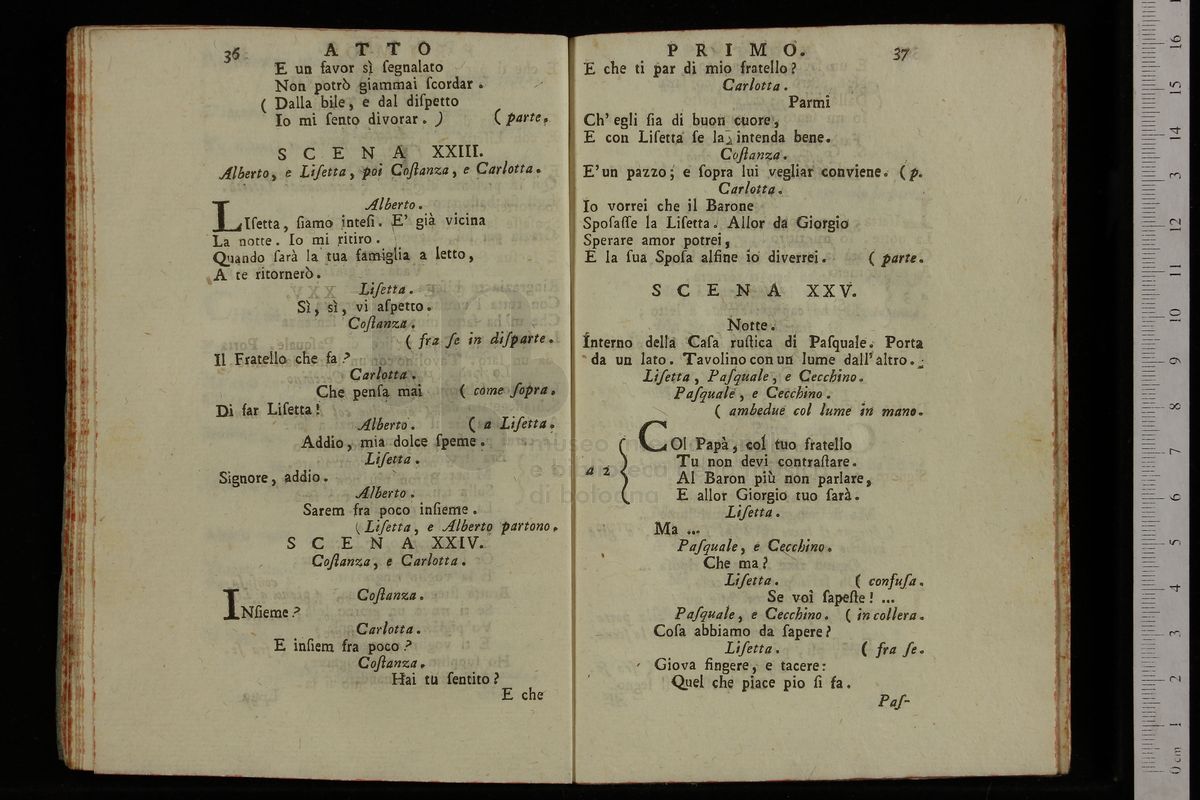 36 ATTO
E un favor sì ſegnalato
Non potrò giammai ſcordar .
( Dalla bile, e dal diſpetto
Io mi ſento divorar. ) ( parte.
SCENA XXIII.
Alberto, e Liſetta, poi Coſtanza, e Carlotta.
Alberto.
LIſetta, ſiamo inteſi. E' già vicina
La notte. Io mi ritiro.
Quando ſarà la tua famiglia a letto,
A te ritornerò.
Liſetta.
Sì, sì, vi aſpetto.
Coſtanza.
( fra ſe in diſparte.
Il Fratello che fa?
Carlotta.
Che penſa mai ( come ſopra.
Di far Liſetta!
Alberto. ( a Liſetta.
Addio, mia dolce ſpeme.
Liſetta.
Signore, addio.
Alberto.
Sarem fra poco inſieme.
( Liſetta, e Alberto partono.
SCENA XXIV.
Coſtanza, e Carlotta.
Coſtanza.
INſieme?
Carlotta.
E inſiem fra poco?
Coſtanza.
Hai tu ſentito?
E che
PRIMO. 37
E che ti par di mio fratello?
Carlotta.
Parmi
Ch' egli ſia di buon cuore,
E con Liſetta ſe la intenda bene.
Coſtanza.
E' un pazzo; e ſopra lui vegliar conviene. ( p.
Carlotta.
Io vorrei che il Barone
Spoſaſſe la Liſetta. Allor da Giorgio
Sperare amor potrei,
E la ſua Spoſa alfine io diverrei. ( parte.
SCENA XXV.
Notte.
Interno della Caſa ruſtica di Paſquale. Porta
da un lato. Tavolino con un lume dall' altro.
Liſetta, Paſquale, e Cecchino.
Paſquale, e Cecchino.
( ambedue col lume in mano.
COl Papà, col tuo fratello
Tu non devi contraſtare.
a 2 Al Baron più non parlare,
E allor Giorgio tuo ſarà.
Liſetta.
Ma ...
Paſquale, e Cecchino.
Che ma?
Liſetta. ( confuſa.
Se voi ſapeſte! ...
Paſquale, e Cecchino. ( in collera.
Coſa abbiamo da ſapere?
Liſetta. ( fra ſe.
Giova fingere, e tacere:
Quel che piace pio ſi fa.
Paſ-